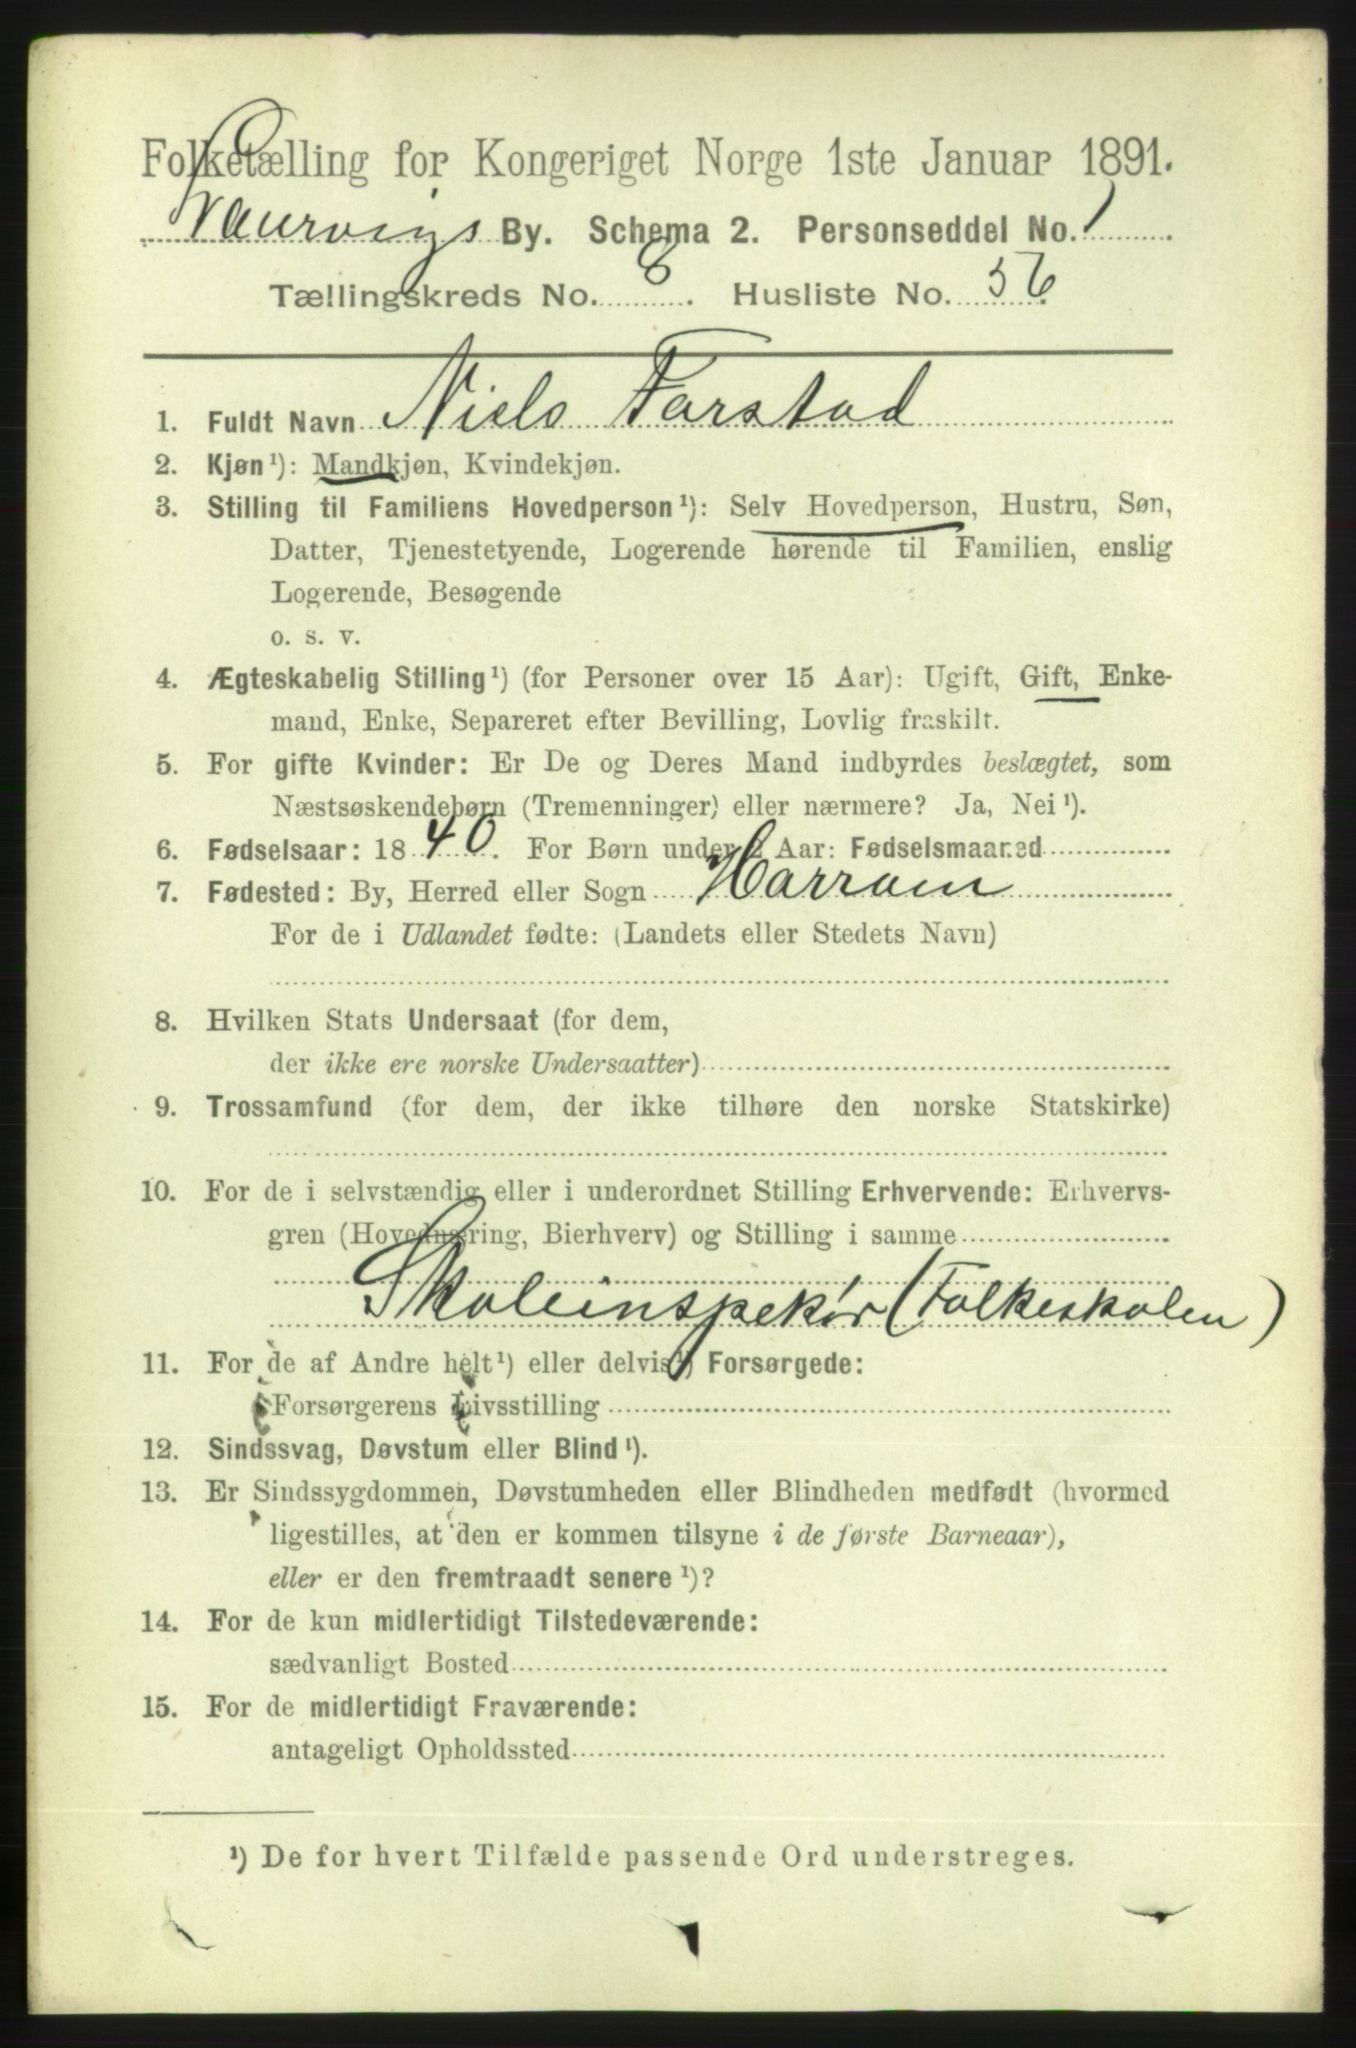 Folketælling for Kongeriget Norge 1ste Januar 1891.
Laurvigs By. Schema 2. Personseddel No. 1
Tællingskreds No. 8. Husliste No. 56
1. Fuldt Navn Niels Farstad
2. Kjøn¹): Mandkjøn, Kvindekjøn.
3. Stilling til Familiens Hovedperson¹): Selv Hovedperson, Hustru, Søn,
Datter, Tjenestetyende, Logerende hørende til Familien, enslig
Logerende, Besøgende
o. s. v.
4. Ægteskabelig Stilling¹) (for Personer over 15 Aar): Ugift, Gift, Enke-
mand, Enke, Separeret efter Bevilling, Lovlig fraskilt.
5. For gifte Kvinder: Er De og Deres Mand indbyrdes beslægtet, som
Næstsøskendebørn (Tremenninger) eller nærmere? Ja, Nei¹).
6. Fødselsaar: 1840. For Børn under 2 Aar: Fødselsmaaned
7. Fødested: By, Herred eller Sogn Harram
For de i Udlandet fødte: (Landets eller Stedets Navn)
8. Hvilken Stats Undersaat (for dem,
der ikke ere norske Undersaatter)
9. Trossamfund (for dem, der ikke tilhøre den norske Statskirke)
10. For de i selvstændig eller i underordnet Stilling Erhvervende: Erhvervs-
gren (Hovednæring, Bierhverv) og Stilling i samme
Skoleinspekør (Folkeskolen)
11. For de af Andre helt¹) eller delvis¹) Forsørgede:
Forsørgerens Livsstilling
12. Sindssvag, Døvstum eller Blind¹).
13. Er Sindssygdommen, Døvstumheden eller Blindheden medfødt (hvormed
ligestilles, at den er kommen tilsyne i de første Barneaar),
eller er den fremtraadt senere¹)?
14. For de kun midlertidigt Tilstedeværende:
sædvanligt Bosted
15. For de midlertidigt Fraværende:
antageligt Opholdssted
¹) De for hvert Tilfælde passende Ord understreges.